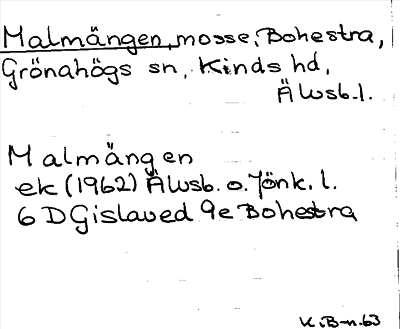 Malmängen, mosse, Bohestra,
Grönahögs sn, Kinds hd,
Älvsb. l.
Malmängen
ek (1962) Älvsb. o. Jönk. l.
6 D Gislaved 9e Bohestra
K.B-n. 63